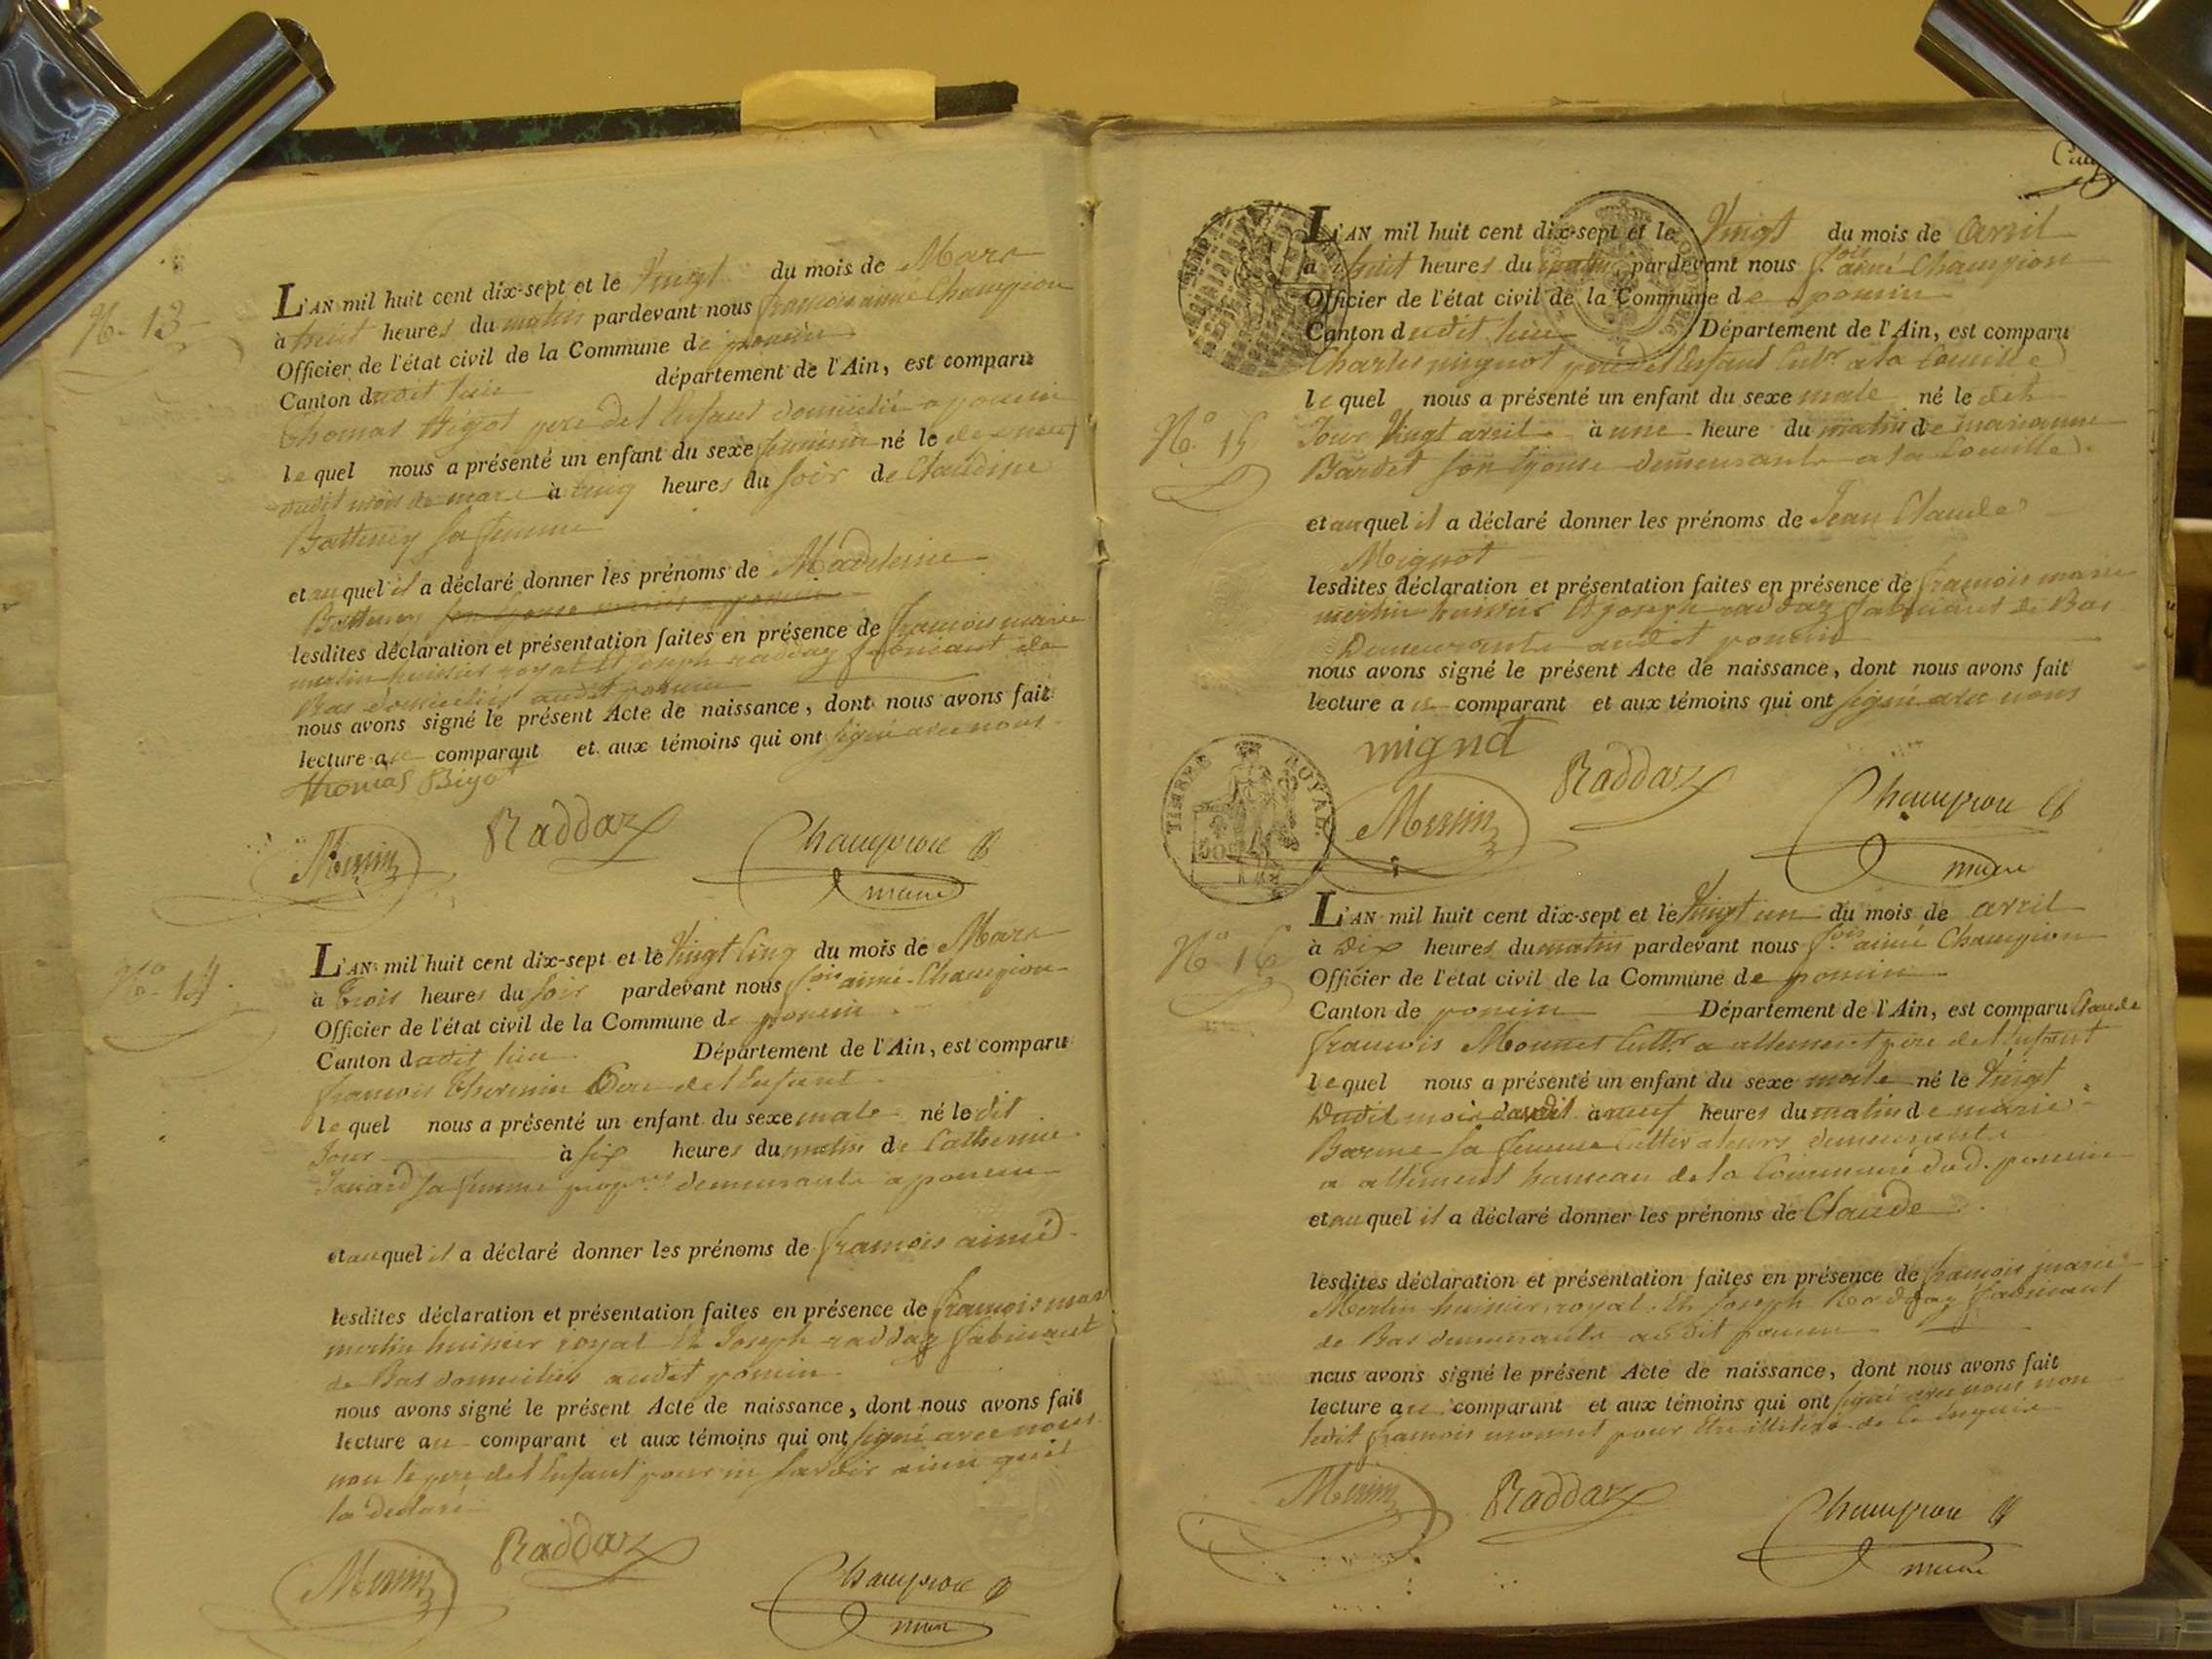 N.o 13
L'AN mil huit cent dix-sept et le Vingt du mois de Mars
à huit heures du matin pardevant nous francois aimé Champion
Officier de l'état civil de la Commune de poncin
Canton dudit lieu département de l'Ain, est comparu
Thomas Bigot pere del Enfant domicilié a poncin
lequel nous a présenté un enfant du sexe feminin né le dix neuf
dudit mois de mars à cinq heures du soir de Claudine
Batteney sa femme
et auquel il a déclaré donner les prénoms de Madeleine
lesdites déclaration et présentation faites en présence de francois marie
merlin huissier royal Et joseph raddaz fabricant de
Bas domiciliés audit poncin
nous avons signé le présent Acte de naissance, dont nous avons fait
lecture au comparant et aux témoins qui ont signé avec nous
thomas Bigot
Merlin Raddaz Champion
maire
N.o 14
L'AN mil huit cent dix-sept et le Vingt Cinq du mois de Mars
à trois heures du soir pardevant nous f.ois aimé Champion
Officier de l'état civil de la Commune de poncin
Canton dudit lieu Département de l'Ain, est comparu
francois Thermin pere del Enfant
lequel nous a présenté un enfant du sexe male né le dit
Jour à six heures du matin de Catherine
sa femme demeurants a poncin
et auquel il a déclaré donner les prénoms de francois aimé
lesdites déclaration et présentation faites en présence de francois mar
merlin huissier royal Et Joseph raddaz fabricant
de Bas domiciliés audit poncin
nous avons signé le présent Acte de naissance, dont nous avons fait
lecture au comparant et aux témoins qui ont signé avec nous
non le pere del Enfant pour ne savoir ainsi quil
la declaré
Merlin Raddaz Champion
maire
L'AN mil huit cent dix-sept et le Vingt du mois de avril
à huit heures du matin pardevant nous f.ois aimé Champion
Officier de l'état civil de la Commune de poncin
Canton dudit lieu Département de l'Ain, est comparu
Charles mignot pere del Enfant Cult.r a la Couille
lequel nous a présenté un enfant du sexe male né le dit
N.o 15
Jour Vingt avril à une heure du matin de marianne
Bardet son Epouse demeurants a la Couille
et auquel il a déclaré donner les prénoms de Jean Claude
Mignot
lesdites déclaration et présentation faites en présence de francois marie
merlin huissier Et joseph raddaz fabricant de Bas
Demeurants audit poncin
nous avons signé le présent Acte de naissance, dont nous avons fait
lecture au comparant et aux témoins qui ont signé avec nous
mignot
TIMBRE ROYAL
Merlin Raddaz Champion
maire
N.o 16
L'AN mil huit cent dix-sept et le Vingt un du mois de avril
à Dix heures du matin pardevant nous f.ois aimé Champion
Officier de l'état civil de la Commune de poncin
Canton de poncin Département de l'Ain, est comparu Claude
francois Monnet Cult.r a allement pere del Enfant
lequel nous a présenté un enfant du sexe male né le Vingt
Dudit mois à neuf heures du matin de marie
sa femme Cultivateurs demeurants
a allement hameau de la Commune dud. poncin
et auquel il a déclaré donner les prénoms de Claude
lesdites déclaration et présentation faites en présence de francois marie
Merlin huissier royal Et Joseph Raddaz fabricant
de Bas demeurants audit poncin
nous avons signé le présent Acte de naissance, dont nous avons fait
lecture au comparant et aux témoins qui ont signé avec nous non
ledit francois monnet pour de ce Enquis
Merlin Raddaz Champion
maire